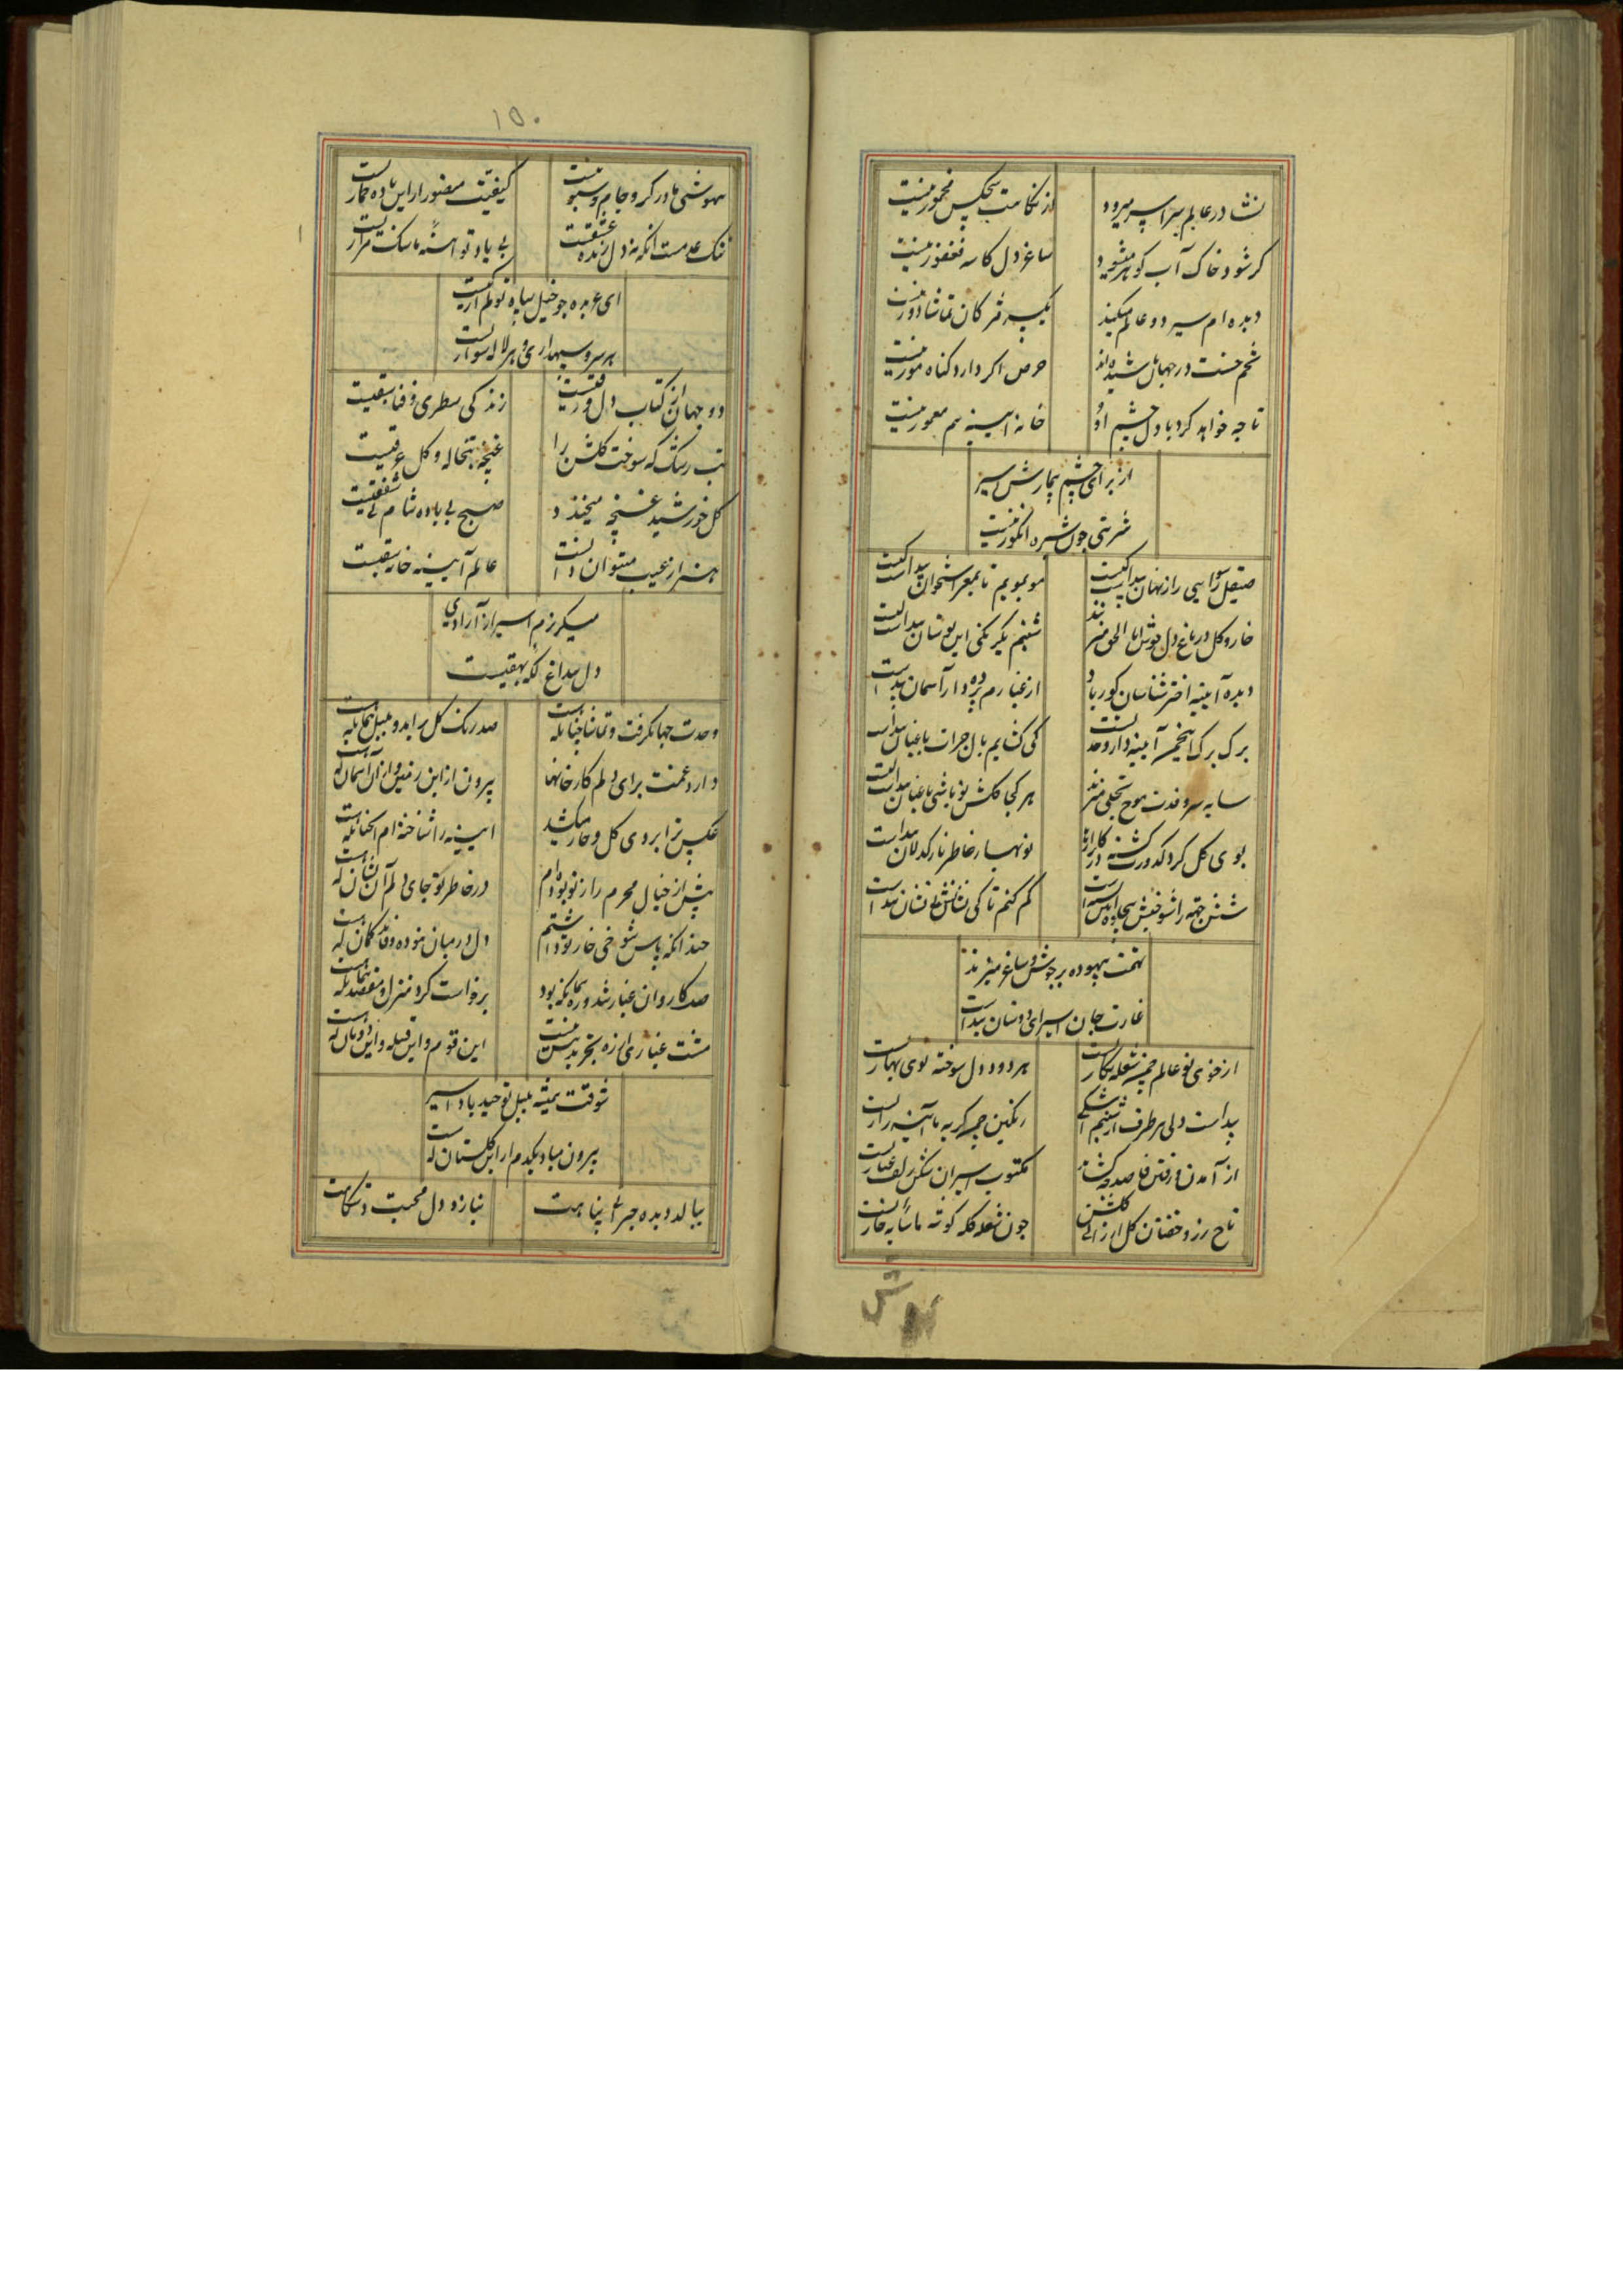 نشا در عالم سراسر میرود
از نکاهت هیچکس مخمور نیست
کر شود خاک آب کوهر میشود
ساغر دل کاسه فغفور نیست
دیده ام سیر دو عالم میکند
یک سر مژکان تماشا دور نیست
تخم حسنت در جهان پاشیده اند
حرص اکر دارد کناه مور نیست
تا چه خواهد کرد با دل چشم او
خانه آیینه هم معمور نیست
از برای چشم بیمارش اسیر
شربتی چون شیره انکور نیست
صیقل رسوایی راز نهان پیداست کیست
مو بمویم تا بمغز استخوان پیداست کیست
خار و کل در باغ دل جوش انا الحق میزنند
شبنم یکرنکی این بوستان پیداست کیست
دیده آیینه اختر شناسان کور باد
از غبارم پرده دار آسمان پیداست
برک برک این چمن آیینه دار وحدتست
کی کشایم بال جرات باغبان پیداست
سایه سرو قدت موج تجلی میزند
هر کجا کلشن تو باشی باغبان پیداست کیست
بوی کل کرد کدورت کشته در کلزارها
نوبهار خاطر نازکدلان پیداست
شش جهة را شوخیش
کم کنم تا کی نشانش بی نشان پیداست
تهمت بیهوده بر جوش و ساغر میزند
غارت جان اسیر ای دوستان پیداست
از خوی تو عالم چمن شعله نکاریست
هر دود دل سوخته بوی بهاریست
پیداست ولی هر طرف از شبنم اشکی
رنکین چمن کریه ما آینه زاریست
از آمدن و رفتن قاصد چه کشاید
مکتوب اسیران شکن زلف غباریست
کل
چون شعله کله کوشه ما سایه خاریست
۱۵۰
بیهوشی ما در کرو جام و سبو نیست
کیفیت منصور از این باده خماریست
ننک عدمست آنکه نه دل زنده عشقیست
بی یاد تو آیینه ما سنک مزاریست
ای عربده جو خیل سپاه تو کم از کیست
هر سرو سپهداری و هر لاله سواریست
دو جهان از کتاب دل ورقیست
زندکی سطری و فنا سبقیست
تب رشک که سوخت کلشن را
غنچه تبخاله و کل عرقیست
کل خورشید غنچه میخندد
صبح بی باده شام بی شفقیست
هنر از عیب میتوان دانست
عالم آیینه خانه
میکریزم اسیر از آزادی
دل بیداغ
وحدت جهان کرفت و تماشا چنانکه هست
صد رنک کل برآید و بلبل همانکه هست
دارد غمت برای دلم کارخانها
بیرون از این زمین و از آن آسمان که هست
عکس ترا بروی کل و خار میکشد
آیینه را شناخته ام آنچنانکه هست
پیش از خیال محرم راز تو بوده ام
در خاطر تو جای دلم آن نشان که هست
چندانکه پاس شوخی خار تو داشتم
دل در میان نبوده وفا در کمان که هست
صد کاروان غبار شد و ره همانکه بود
برخاست کرد منزل و مقصد همانکه هست
مشت غباری از ره تجرید بیش نیست
این قوم و این قبیله و این دودمان که هست
شوقت همیشه بلبل توحید باد اسیر
بیرون مباد یکدم از این کلستان که هست
ببالد دیده حیرانی پناهت
بنازد دل محبت دستکاهت